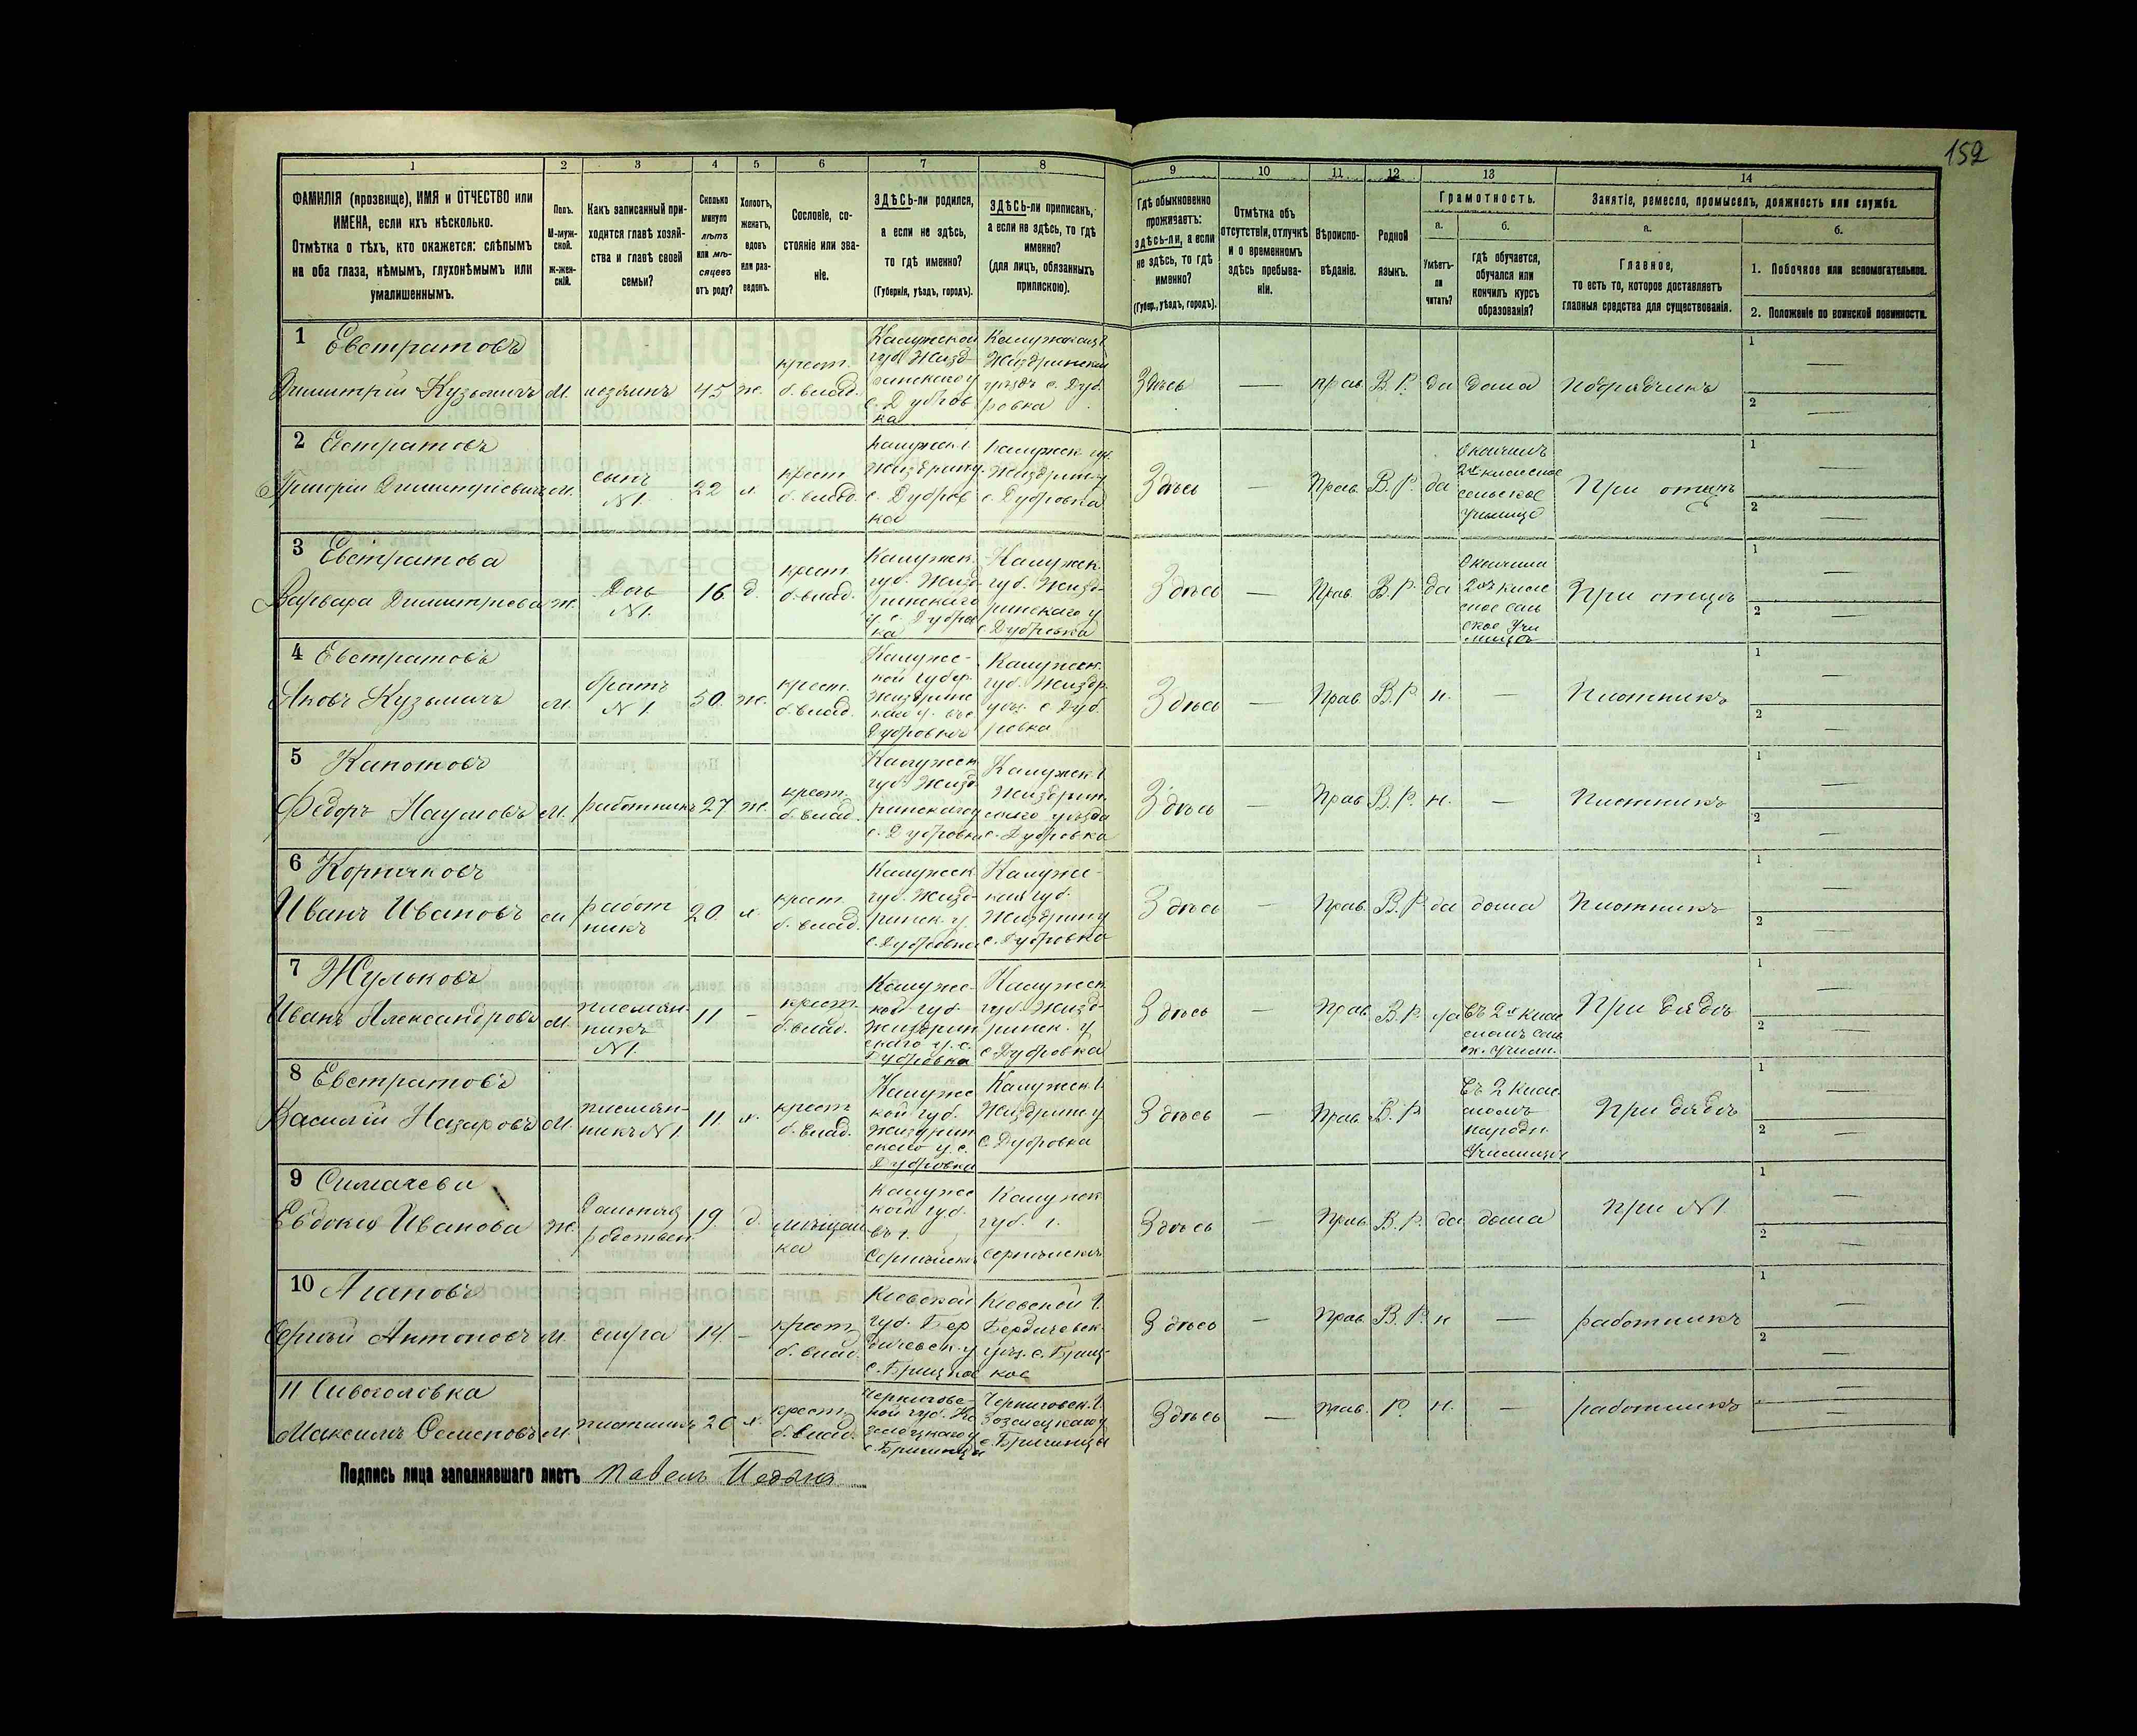 152
1 2 3 4 5 6 7 8 9 10 11 12 13 14
ФАМИЛІЯ (прозвище), ИМЯ и ОТЧЕСТВО или
ИМЕНА, если ихъ нѣсколько.
Отмѣтка о тѣхъ, кто окажется: слѣпымъ
на оба глаза, нѣмымъ, глухонѣмымъ или
умалишеннымъ.
Полъ.
М-муж-
ской.
Ж-жен-
скій.
Какъ записанный при-
ходится главѣ хозяй-
ства и главѣ своей
семьи?
Сколько
минуло
лѣтъ
или мѣ-
сяцевъ
отъ роду?
Холостъ,
женатъ,
вдовъ
или раз-
веденъ.
Сословіе, со-
стояніе или зва-
ніе.
ЗДѢСЬ-ли родился,
а если не здѣсь,
то гдѣ именно?
(Губернія, уѣздъ, городъ).
ЗДѢСЬ-ли приписанъ,
а если не здѣсь, то гдѣ
именно?
(для лицъ, обязанныхъ
припискою).
Гдѣ обыкновенно
проживаетъ:
здѣсь-ли, а если
не здѣсь, то гдѣ
именно?
(Губер., уѣздъ, городъ).
Отмѣтка объ
отсутствіи, отлучкѣ
и о временномъ
здѣсь пребыва-
ніи.
Вѣроиспо-
вѣданіе.
Родной
языкъ.
Грамотность.
а.
Умѣетъ-
ли
читать?
б.
гдѣ обучается,
обучался или
кончилъ курсъ
образованія?
Занятіе, ремесло, промыселъ, должность или служба.
а.
Главное,
то есть то, которое доставляетъ
главныя средства для существованія.
б.
1. Побочное или вспомогательное.
2. Положеніе по воинской повинности.
1 Евстратовъ
Димитрій Кузьмичъ
М.
хозяинъ
45
ж.
крест.
б. влад.
Калужской
губ. Жизд-
ринскаго у
с. Дубров
ка
Калужской г.
Жиздринскій
уѣздъ с. Дуб
ровка
Здѣсь
—
прав.
В. Р.
да
дома
Подрядчикъ
1 —
2 —
2 Евстратовъ
Григорій Димитріевичъ
М.
сынъ
№ 1.
22
х.
крест
б. влад.
Калужск. г.
Жиздрин у.
с. Дубров
ка
Калужск. гу.
Жиздрин. у
с. Дубровка
Здѣсь
—
Прав.
В. Р.
да
Окончилъ
2хъ классное
сельское
училище
При отцѣ
1 —
2 —
3 Евстратова
Варвара Димитріева
Ж.
Дочь
№ 1.
16.
д.
крест
б. влад.
Калужск.
губ. Жизд-
ринскаго
у. с. Дубров
ка
Калужск.
губ. Жизд-
ринскаго у
с. Дубровка
Здѣсь
—
Прав.
В. Р.
да
Окончила
2хъ клас
сное сель
ское Учи
лище
При отцѣ
1 —
2 —
4 Евстратовъ
Яковъ Кузьмичъ
М.
братъ
№ 1.
30.
ж.
крест.
б. влад.
Калужс-
кой губер.
Жиздринс
Дубровка
Калужск.
губ. Жиздр.
уѣз. с. Дуб
ровка
Здѣсь
—
Прав.
В. Р.
н.
—
Плотникъ
1 —
2 —
5 Капотовъ
Ѳедоръ Наумовъ
М.
работникъ
27
ж.
крест.
б. влад.
Калужск
губ. Жизд
ринскаго у
с. Дубровка
Калужск. г.
Жиздрин.
скаго уѣзда
с. Дубровка
Здѣсь
—
Прав
В. Р.
н.
—
Плотникъ
1 —
2 —
6 Корничковъ
Иванъ Ивановъ
м
работ
никъ
20.
х.
крест
б. влад.
Калужск
губ. Жизд-
ринск. у
с. Дубровка
Калужс-
кая губ.
Жиздрин у
с. Дубровка
Здѣсь
—
Прав.
В. Р.
да
дома
Плотникъ
1 —
2 —
7 Жульковъ
Иванъ Александровъ
М.
племян-
никъ
№ 1.
11
—
крест.
б. влад.
Калужс-
кой губ.
Жиздрин
скаго у. с.
Дубровка
Калужск
губ. Жизд-
ринск. у
с. Дубровка
Здѣсь
—
Прав
В. Р.
да
Въ 2х клас
сномъ сель
ск. Учили.
При дядѣ
1 —
2 —
8 Евстратовъ
Василій Назаровъ
М.
племян-
никъ № 1.
11.
х.
крест
б. влад.
Калужс
кой губ.
Жиздрин
скаго у. с.
Дубровка
Калужск. г.
Жиздрин у.
с. Дубровка
Здѣсь
—
Прав.
В. Р.
Въ 2 клас
сномъ
народн.
Училищѣ
При дядѣ
1 —
2 —
9 Симачева
Евдокія Иванова
Ж.
Дальняя
родствен
19.
д.
мѣщан
ка
Калужс
кой губ.
въ г.
Калужск
губ. г.
Здѣсь
—
Прав.
В. Р.
да
дома
При № 1
1 —
2 —
10 Агаповъ
Сергѣй Антоновъ
М.
слуга
14.
—
крест.
б. влад.
Кіевской
губ. Бер
дичевск. у
с. Брицкое
Кіевской г.
Бердичевск.
уѣз. с. Бриц-
кое
Здѣсь
—
Прав.
В. Р.
н
—
работникъ
1 —
2 —
11 Сивоголовка
Максимъ Семеновъ
М.
плотникъ
20
х.
крест.
б. влад.
Черниговс
кой губ. Ко
зелецкаго у
Черниговск. г
Козелецкаго у
Здѣсь
—
прав.
Р.
н.
—
работникъ
Подпись лица заполнявшаго листъ Павелъ